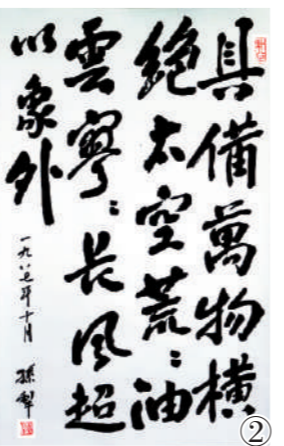 具備萬物橫
絶太空荒〻油
雲寥〻長風超
以象外
一九八七年十月 孫犁
②